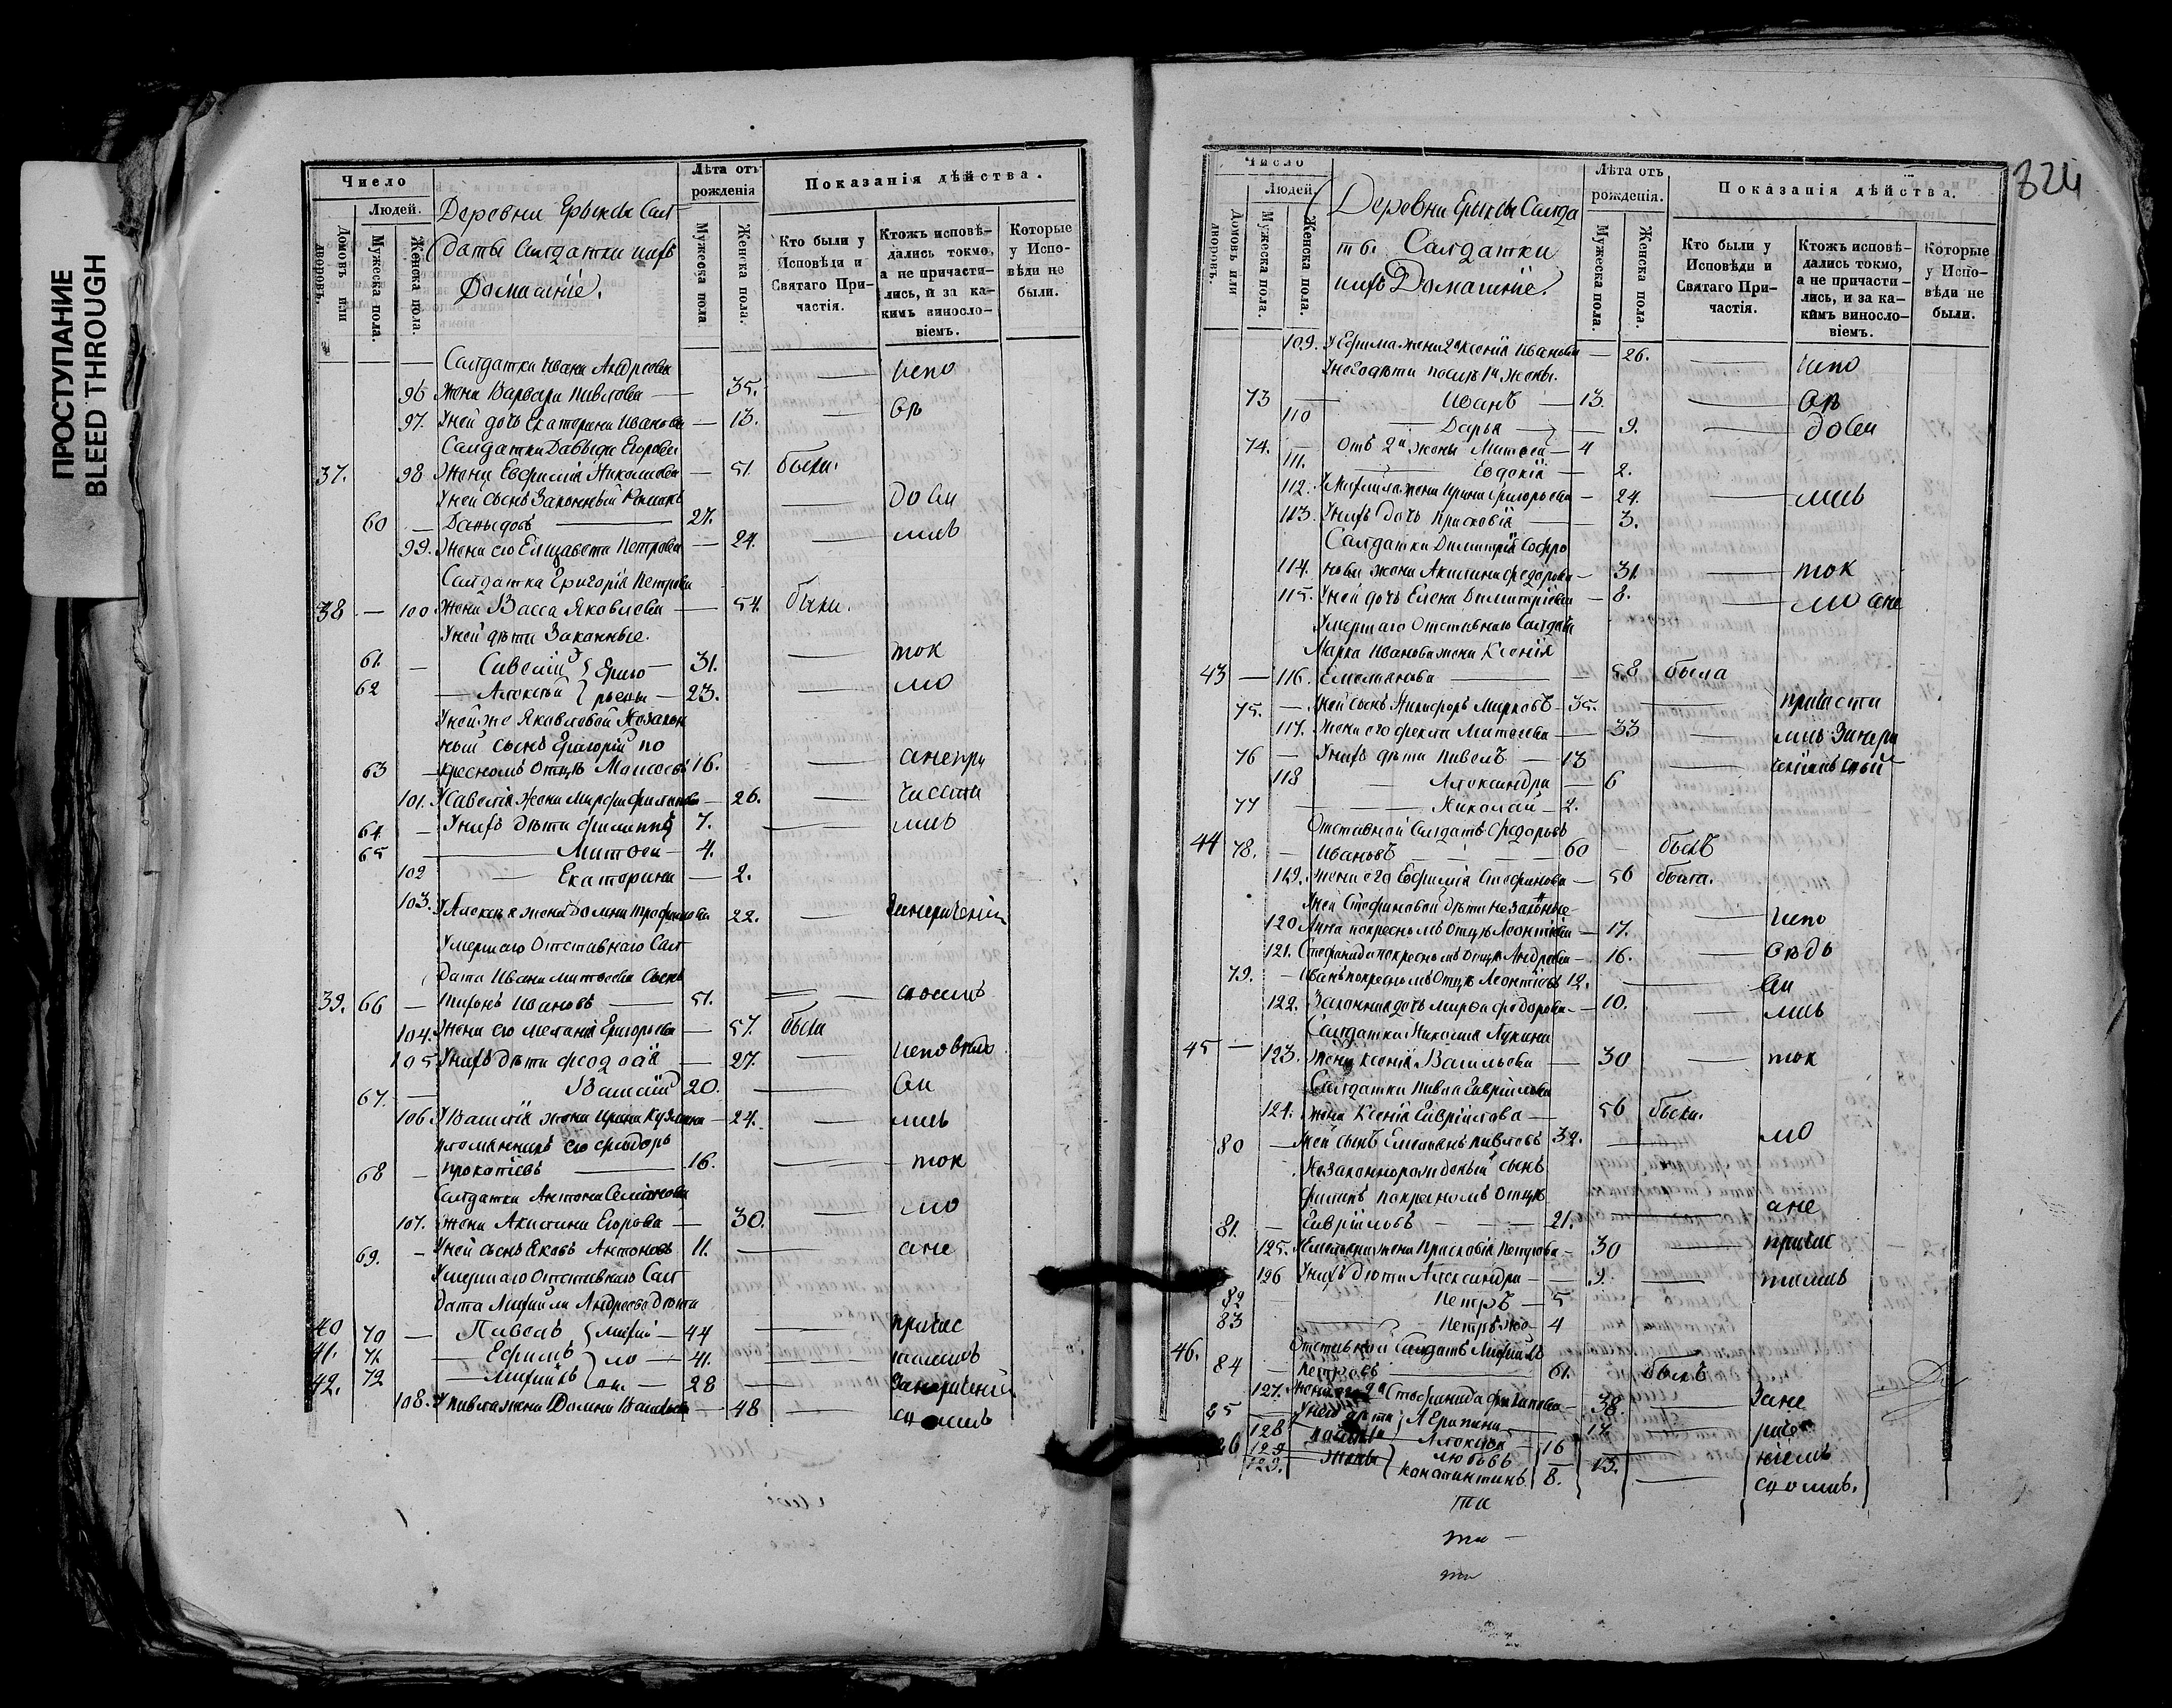 ПРОСТУПАНИЕ
BLEED THROUGH
Число
Людей.
Домовъ или дворовъ.
Мужеска пола.
Женска пола.
Деревни Ерыксы Сал
даты Салдатки ихъ
Домашніе.
Лѣта отъ рожденія
Мужеска пола.
Женска пола.
Показанія дѣйства.
Кто были у Исповѣди и Святаго Причастія.
Ктожъ исповѣдались токмо, а не причастились, и за какимъ винословіемъ.
Которые у Исповѣди не были.
Салдатки Ивана Андреева
96 жена Варвара Павлова — 35. — испо
97. У ней дочь Екатерина Иванова — 13. — вѣ
Салдатки Давыда Егорова
37. 98 Жена Евфимія Николаева — 51. были.
У ней сынъ Законный
60 — Давыдовъ — 27. — дова
99. Жена его Елизавета Петрова — 24. — лись
Салдатка Григорія Петрова
38 — 100 жена Васса Яковлева — 54. были.
У ней дѣти Законные.
61. — Савелій } Григо — 31. — ток
62 — Алексѣй } рьевы — 23. — мо
У ней же Яковлевой Незакон
ный сынъ Григорій по
63 — кресномъ отцѣ Моисеевъ 16. — а не при
101. У Савелія жена Марфа Филипова — 26. — части
64. — У нихъ дѣти Филиппъ 7. — лись
65 — Матвей — 4.
102 — Екатерина — 2.
103. У Алексѣя жена Домна Трофимова 22. — за нераченіи
Умершаго Отставнаго Сал
дата Ивана Матвеева сынъ
39. 66 — Ивановъ — 51. — емъ
104. Жена его Меланія Григорьева — 57. была
105 У нихъ дѣти — 27. — исповѣдо
67. — Василій 20. — ва
106. У Василія жена Ирина Кузмина — 24. — лись
племянникъ его Федоръ
68 — Прокопіевъ — 16. — ток
Салдатки Антона Семенова
107. Жена Акилина Егорова — 30. — мо
69. — У ней сынъ Яковъ Антоновъ 11. — а не
Умершаго Отставнаго Сал
дата Михаила Андреева дѣти
40 70 — Павелъ } Михай — 44 — причас
41. 71. — Ефимъ } ло — 41. — тились
42. 72 — Михаилъ } вы. — 28 — за нераченіи
108. У Павла жена Домна Васильева — 48 — емъ
324
Число
Людей.
Домовъ или дворовъ.
Мужеска пола.
Женска пола.
Деревни Ерыксы Салда
ты Салдатки
ихъ Домашніе.
Лѣта отъ рожденія.
Мужеска пола.
Женска пола.
Показанія дѣйства.
Кто были у Исповѣди и Святаго Причастія.
Ктожъ исповѣдались токмо, а не причастились, и за какимъ винословіемъ.
Которые у Исповѣди не были.
109. У Ефима жена 2я Ксенія Иванова — 26. — испо
У него дѣти 1й жены.
73 — Иванъ — 13. — вѣ
110 — Дарья — 9. — дова
74. — Отъ 2й жены Матвей — 4
111. — Евдокія — 2.
112. У Михаила жена Ирина Григорьева — 24. — лись
113. У нихъ дочь Прасковія — 3.
Салдатки Димитрія Софро
114. нова жена Акилина Федорова — 31. — ток
115. У ней дочь Елена Димитріева — 8. — мо а не
Умершаго Отставнаго Салдата
Марка Иванова жена Ксенія
43 — 116. Емельянова — 58 была
75. — У ней сынъ Никифоръ Марковъ — 35. — причасти
117. Жена его Фекла Матвеева — 33 — лись за нера
76 — У нихъ дѣти Павелъ — 13
118 — Александра — 6
77 — Николай — 2.
Отставной Салдатъ Федоръ
44 78. — Ивановъ — 60 былъ
119. Жена его Евфимія Стефанова — 56 была.
У ней Стефановой дѣти незаконные
120 Анна по кресномъ отцѣ Леонтіева — 17. — испо
121. Стефанида по кресномъ отцѣ Андреева — 16. — вѣдо
79. — Иванъ по кресномъ отцѣ Леонтіевъ 12. — ва
122. Законная дочь Марфа Федорова — 10. — лись
Салдатки Николая Лукина
45 — 123. Жена Ксенія Васильева — 30 — ток
Салдатки Павла Гаврилова
124. жена Ксенія Гаврилова — 56 была.
80 — У ней сынъ Емельянъ Павловъ 32. — мо
Незаконнорожденный сынъ
Филипъ по кресномъ отцѣ
81. — Гавриловъ — 21. — а не
125. У Емельяна жена Прасковія — 30 — причас
126 У нихъ дѣти Александра — 9. — тились
82 Петръ — 5
83 — Петръ же — 4
46. Отставной Салдатъ Михаилъ
84 — Петровъ — 61. былъ
127. Жена его 2я Стефанида Филипова — 38 — за не
85 — У него дѣти
128 Агрипина — 17. — раче
86 Алексѣй — 16 — ніемъ
129. жены Любовь 13.
Констинтинъ 8.